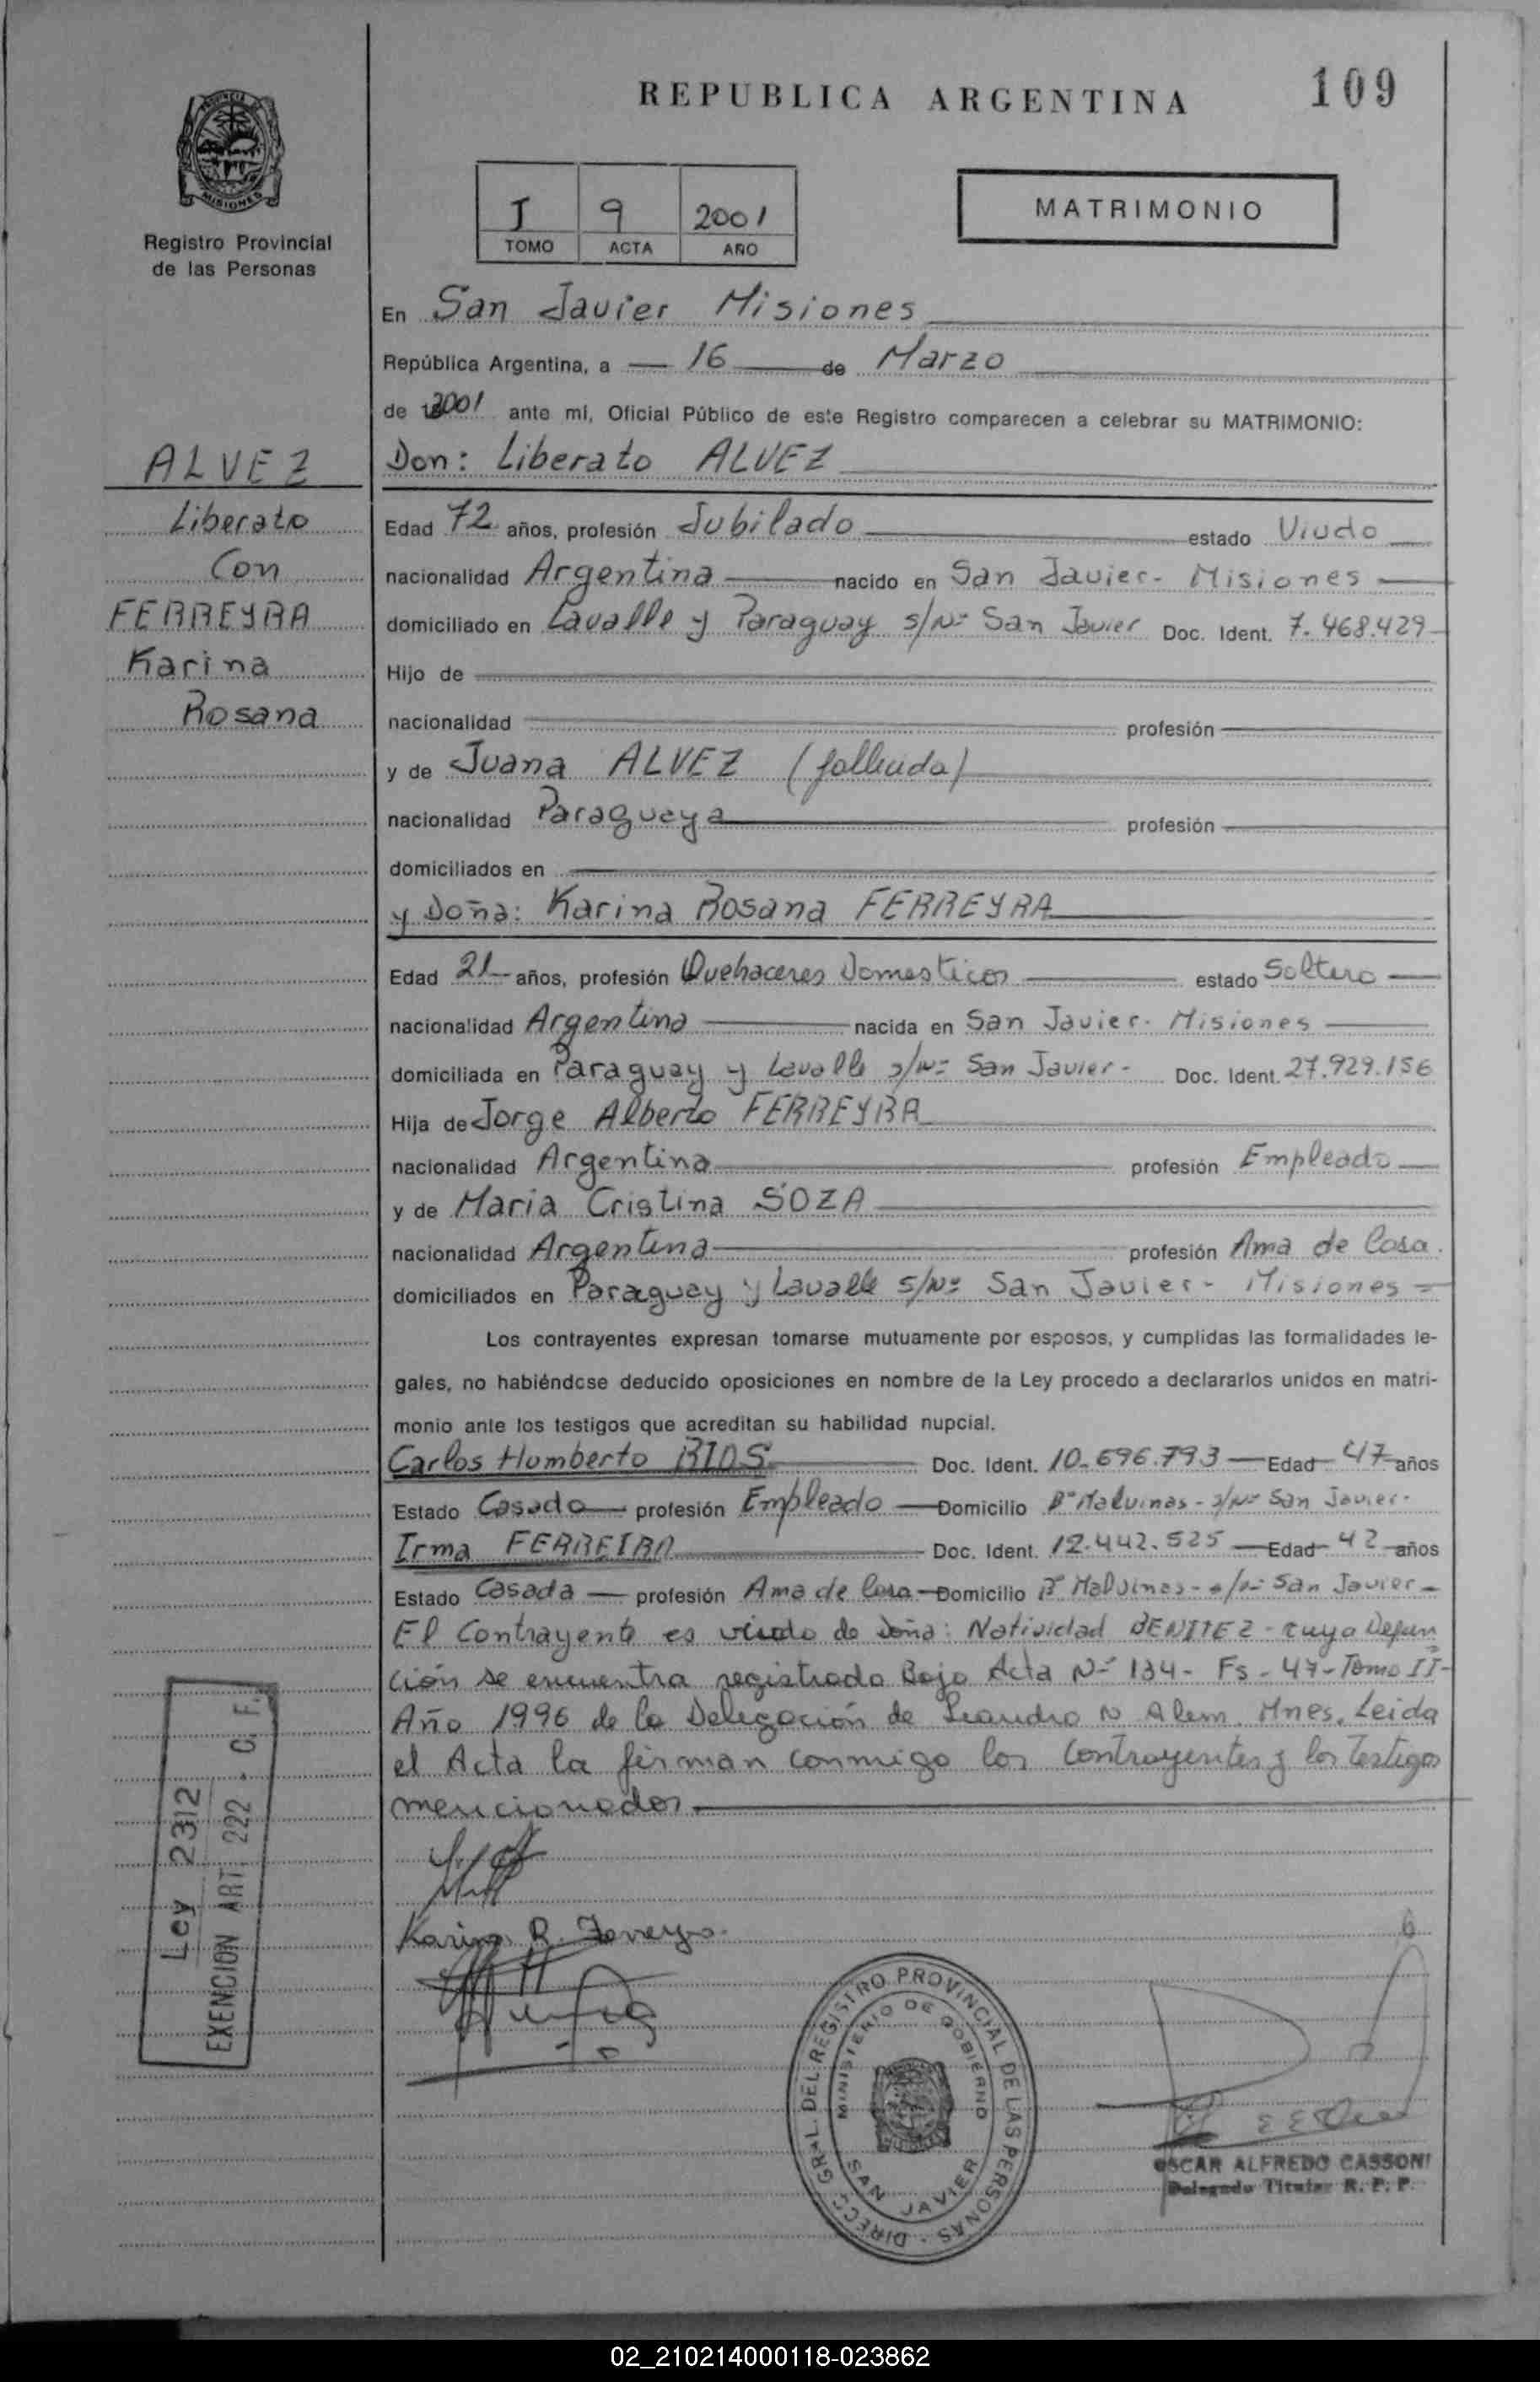 REPUBLICA ARGENTINA
109
PROVINCIA DE
MISIONES
Registro Provincial
de las Personas
I 9 2001
TOMO ACTA AÑO
MATRIMONIO
En San Javier Misiones
República Argentina, a 16 de Marzo
de 2001 ante mí, Oficial Público de este Registro comparecen a celebrar su MATRIMONIO:
ALVEZ
Liberato
Con
FERREYRA
Karina
Rosana
Don: Liberato ALVEZ
Edad 72 años, profesión Jubilado estado Viudo
nacionalidad Argentina nacido en San Javier - Misiones
domiciliado en Lavalle y Paraguay s/Nº San Javier Doc. Ident. 7.468.429
Hijo de
nacionalidad profesión
y de Juana ALVEZ (fallecida)
nacionalidad Paraguaya profesión
domiciliados en
y Doña: Karina Rosana FERREYRA
Edad 21 años, profesión Quehaceres Domesticos estado Soltera
nacionalidad Argentina nacida en San Javier - Misiones
domiciliada en Paraguay y Lavalle s/Nº San Javier - Doc. Ident. 27.929.156
Hija de Jorge Alberto FERREYRA
nacionalidad Argentina profesión Empleado
y de Maria Cristina SOZA
nacionalidad Argentina profesión Ama de Casa.
domiciliados en Paraguay y Lavalle s/Nº San Javier - Misiones
Los contrayentes expresan tomarse mutuamente por esposos, y cumplidas las formalidades le-
gales, no habiéndose deducido oposiciones en nombre de la Ley procedo a declararlos unidos en matri-
monio ante los testigos que acreditan su habilidad nupcial.
Carlos Humberto RIOS Doc. Ident. 10.696.793 Edad 47 años
Estado Casado profesión Empleado Domicilio Bº Malvinas - s/Nº San Javier -
Irma FERREIRA Doc. Ident. 12.442.525 Edad 42 años
Estado Casada profesión Ama de Casa Domicilio Bº Malvinas - s/Nº San Javier -
El Contrayente es viudo de Doña: Natividad BENITEZ - cuya Defun
ción se encuentra registrada Bajo Acta Nº 134 - Fs - 47 - Tomo II -
Año 1996 de la Delegación de Leandro N Alem. Mnes. Leida
el Acta la firman conmigo los Contrayentes y los Testigos
mencionados
Ley 2312
EXENCION ART. 222 - C. F.
Karina R. Ferreyra
DIRECC. GRAL. DEL REGISTRO PROVINCIAL DE LAS PERSONAS
MINISTERIO DE GOBIERNO
SAN JAVIER
OSCAR ALFREDO CASSONI
Delegado Titular R. P. P.
02_210214000118-023862